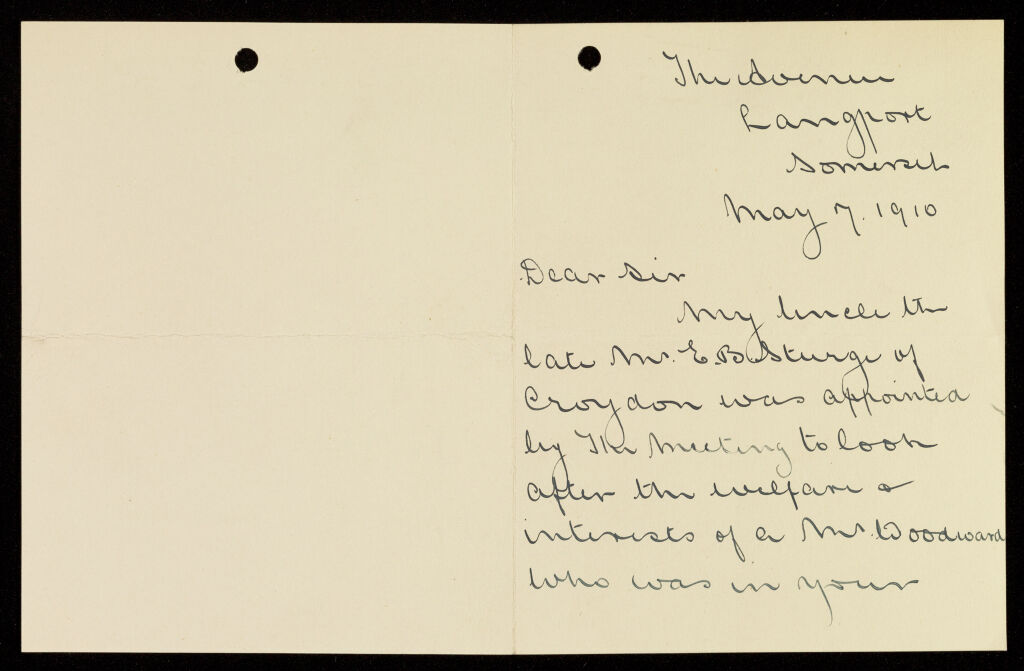 The Avenue
Langport
Somerset
May 7. 1910
Dear Sir
My Uncle the
late Mr. E. B. Sturge of
Croydon was appointed
by The Meeting to look
after the welfare &
interests of a Mr. Woodward
who was in your